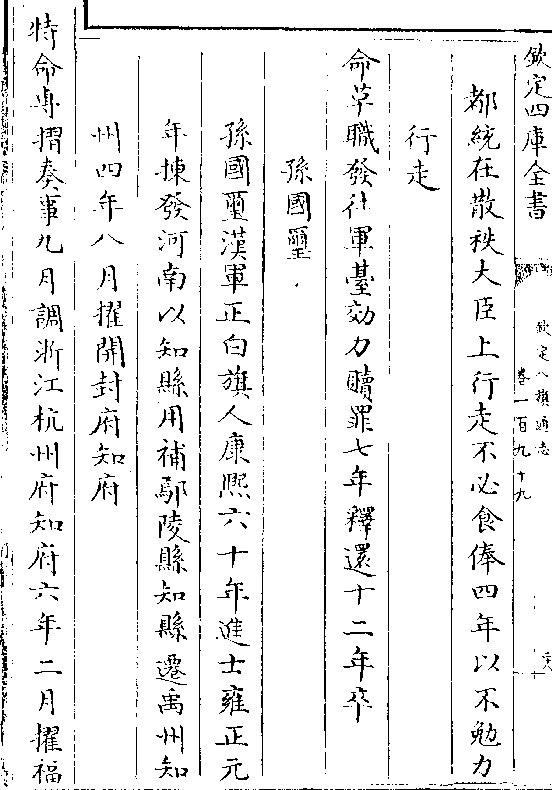 欽定四庫全書
欽定八旗通志
卷一百九十九
都統在散秩大臣上行走不必食俸四年以不勉力
行走
命革職發往軍臺効力贖罪七年釋還十二年卒
孫國璽
孫國璽漢軍正白旗人康熙六十年進士雍正元
年揀發河南以知縣用補鄢陵縣知縣遷禹州知
州四年八月擢開封府知府
特命專摺奏事九月調浙江杭州府知府六年二月擢福